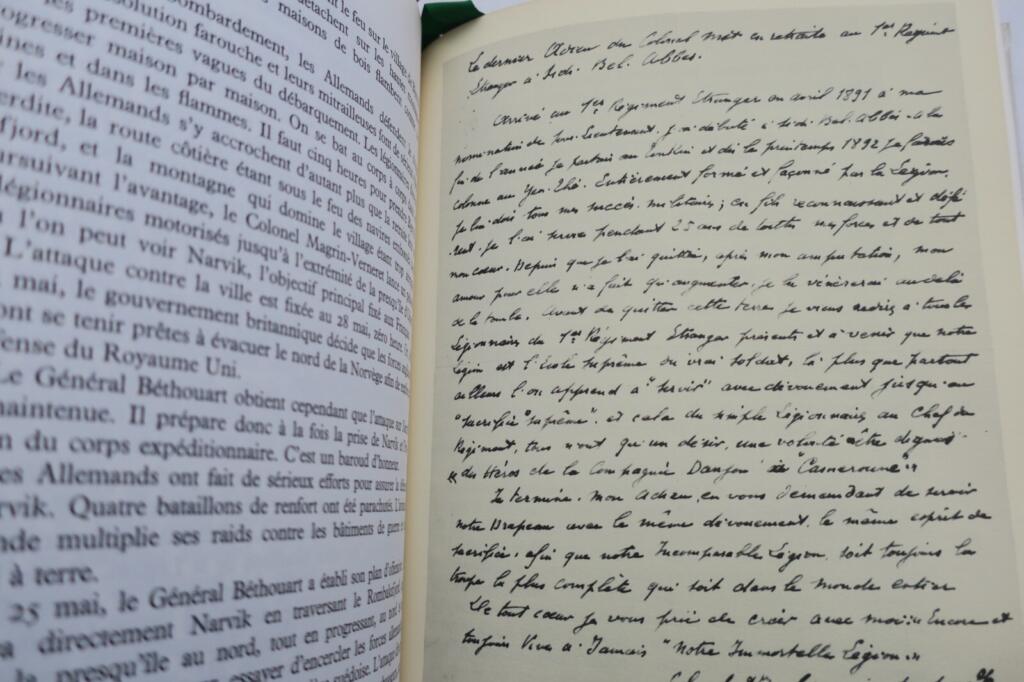 nt le feu sur le village
détachent sur les
bombardement, les Allemands défendent
maisons de bois flambent
solution farouche et leurs mitrailleuses font de
les premières vagues du débarquement. Les légionnaires
ogresser maison par maison. On se bat au corps à corps
ines et dans les flammes. Il faut cinq heures pour prendre
les Allemands s'y accrochent d'autant plus que la
erdite, la route côtière étant sous le feu des navires
fjord, et la montagne qui domine le village étant trop
ursuivant l'avantage, le Colonel Magrin-Verneret lance
légionnaires motorisés jusqu'à l'extrémité de la presqu'île
ù l'on peut voir Narvik, l'objectif principal fixé aux
L'attaque contre la ville est fixée au 28 mai, zéro heure.
mai, le gouvernement britannique décide que les forces
ont se tenir prêtes à évacuer le nord de la Norvège afin de
fense du Royaume Uni.
Le Général Béthouart obtient cependant que l'attaque sur
maintenue. Il prépare donc à la fois la prise de Narvik et
n du corps expéditionnaire. C'est un baroud d'honneur.
es Allemands ont fait de sérieux efforts pour assurer la
rvik. Quatre bataillons de renfort ont été parachutés.
nde multiplie ses raids contre les bâtiments de guerre
à terre.
25 mai, le Général Béthouart a établi son plan d'offensive
a directement Narvik en traversant le Rombaksfjord
la presqu'île au nord, tout en progressant, au
essayer d'encercler les forces
suédoise. L'attaque
Le dernier Adieu du Colonel mis en retraite au 1er Régiment
Etranger à Sidi. Bel. Abbès.
Arrivé au 1er Régiment Etranger en avril 1891 à ma
nomination de Sous-Lieutenant. J'ai débuté à Sidi. Bel. Abbès. A la
fin de l'année je partais au Tonkin et dès le printemps 1892 je faisais
colonne au Yen. Thé. Entièrement formé et façonné par la Légion,
je lui dois tous mes succès militaires; en fils reconnaissant et défé
rent. je l'ai servie pendant 25 ans de toutes mes forces et de tout
mon cœur. Depuis que je l'ai quittée, après mon amputation, mon
amour pour elle n'a fait qu'augmenter, je la vénèrerai au delà
de la tombe. Avant de quitter cette terre je veux redire à tous les
Légionnaires du 1er Régiment Etranger présents et à venir que notre
Légion est l'Ecole suprême du vrai soldat, là plus que partout
ailleurs l'on apprend à "servir" avec dévouement jusqu'au
"sacrifice suprême". et cela du simple Légionnaire au Chef de
Régiment, tous n'ont qu'un désir, une volonté "être dignes"
"des Héros de la Compagnie Danjou à "Camerone".
Je termine. mon Adieu, en vous demandant de servir
notre Drapeau avec le même dévouement, le même esprit de
sacrifice, afin que notre Incomparable Légion, soit toujours la
troupe la plus complète qui soit dans le monde entier
De tout cœur je vous prie de crier avec moi "Encore et
toujours Vive à Jamais "Notre Immortelle Légion"